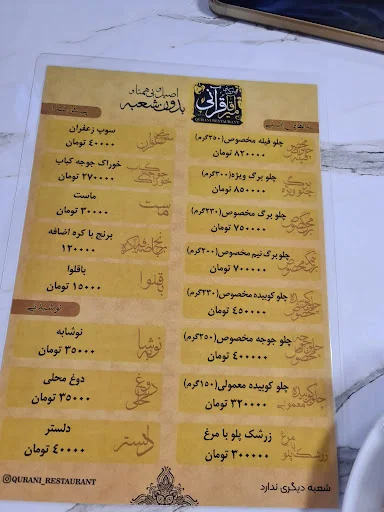 اصیل و بی همتا
بدون شعبه
قرآنی
QURANI.RESTAURANT
چلو فیله مخصوص(۳۵۰گرم)
۸۲۰۰۰۰ تومان
چلو برگ ویژه(۳۰۰گرم)
۸۵۰۰۰۰ تومان
چلو برگ مخصوص(۲۳۰گرم)
۷۵۰۰۰۰ تومان
چلو برگ نیم مخصوص(۲۰۰گرم)
۷۰۰۰۰۰ تومان
چلو کوبیده مخصوص(۲۳۰گرم)
۴۵۰۰۰۰ تومان
چلو جوجه مخصوص(۳۵۰گرم)
۴۰۰۰۰۰ تومان
چلو کوبیده معمولی(۱۵۰گرم)
۳۲۰۰۰۰ تومان
زرشک پلو با مرغ
۳۰۰۰۰۰ تومان
سوپ زعفران
۴۰۰۰۰ تومان
خوراک جوجه کباب
۲۷۰۰۰۰ تومان
ماست
۳۰۰۰۰ تومان
برنج با کره اضافه
۱۲۰۰۰۰
باقلوا
۱۵۰۰۰ تومان
نوشیدنی
نوشابه
۳۵۰۰۰ تومان
دوغ محلی
۳۵۰۰۰ تومان
دلستر
۴۰۰۰۰ تومان
QURANI_RESTAURANT
شعبه دیگری ندارد